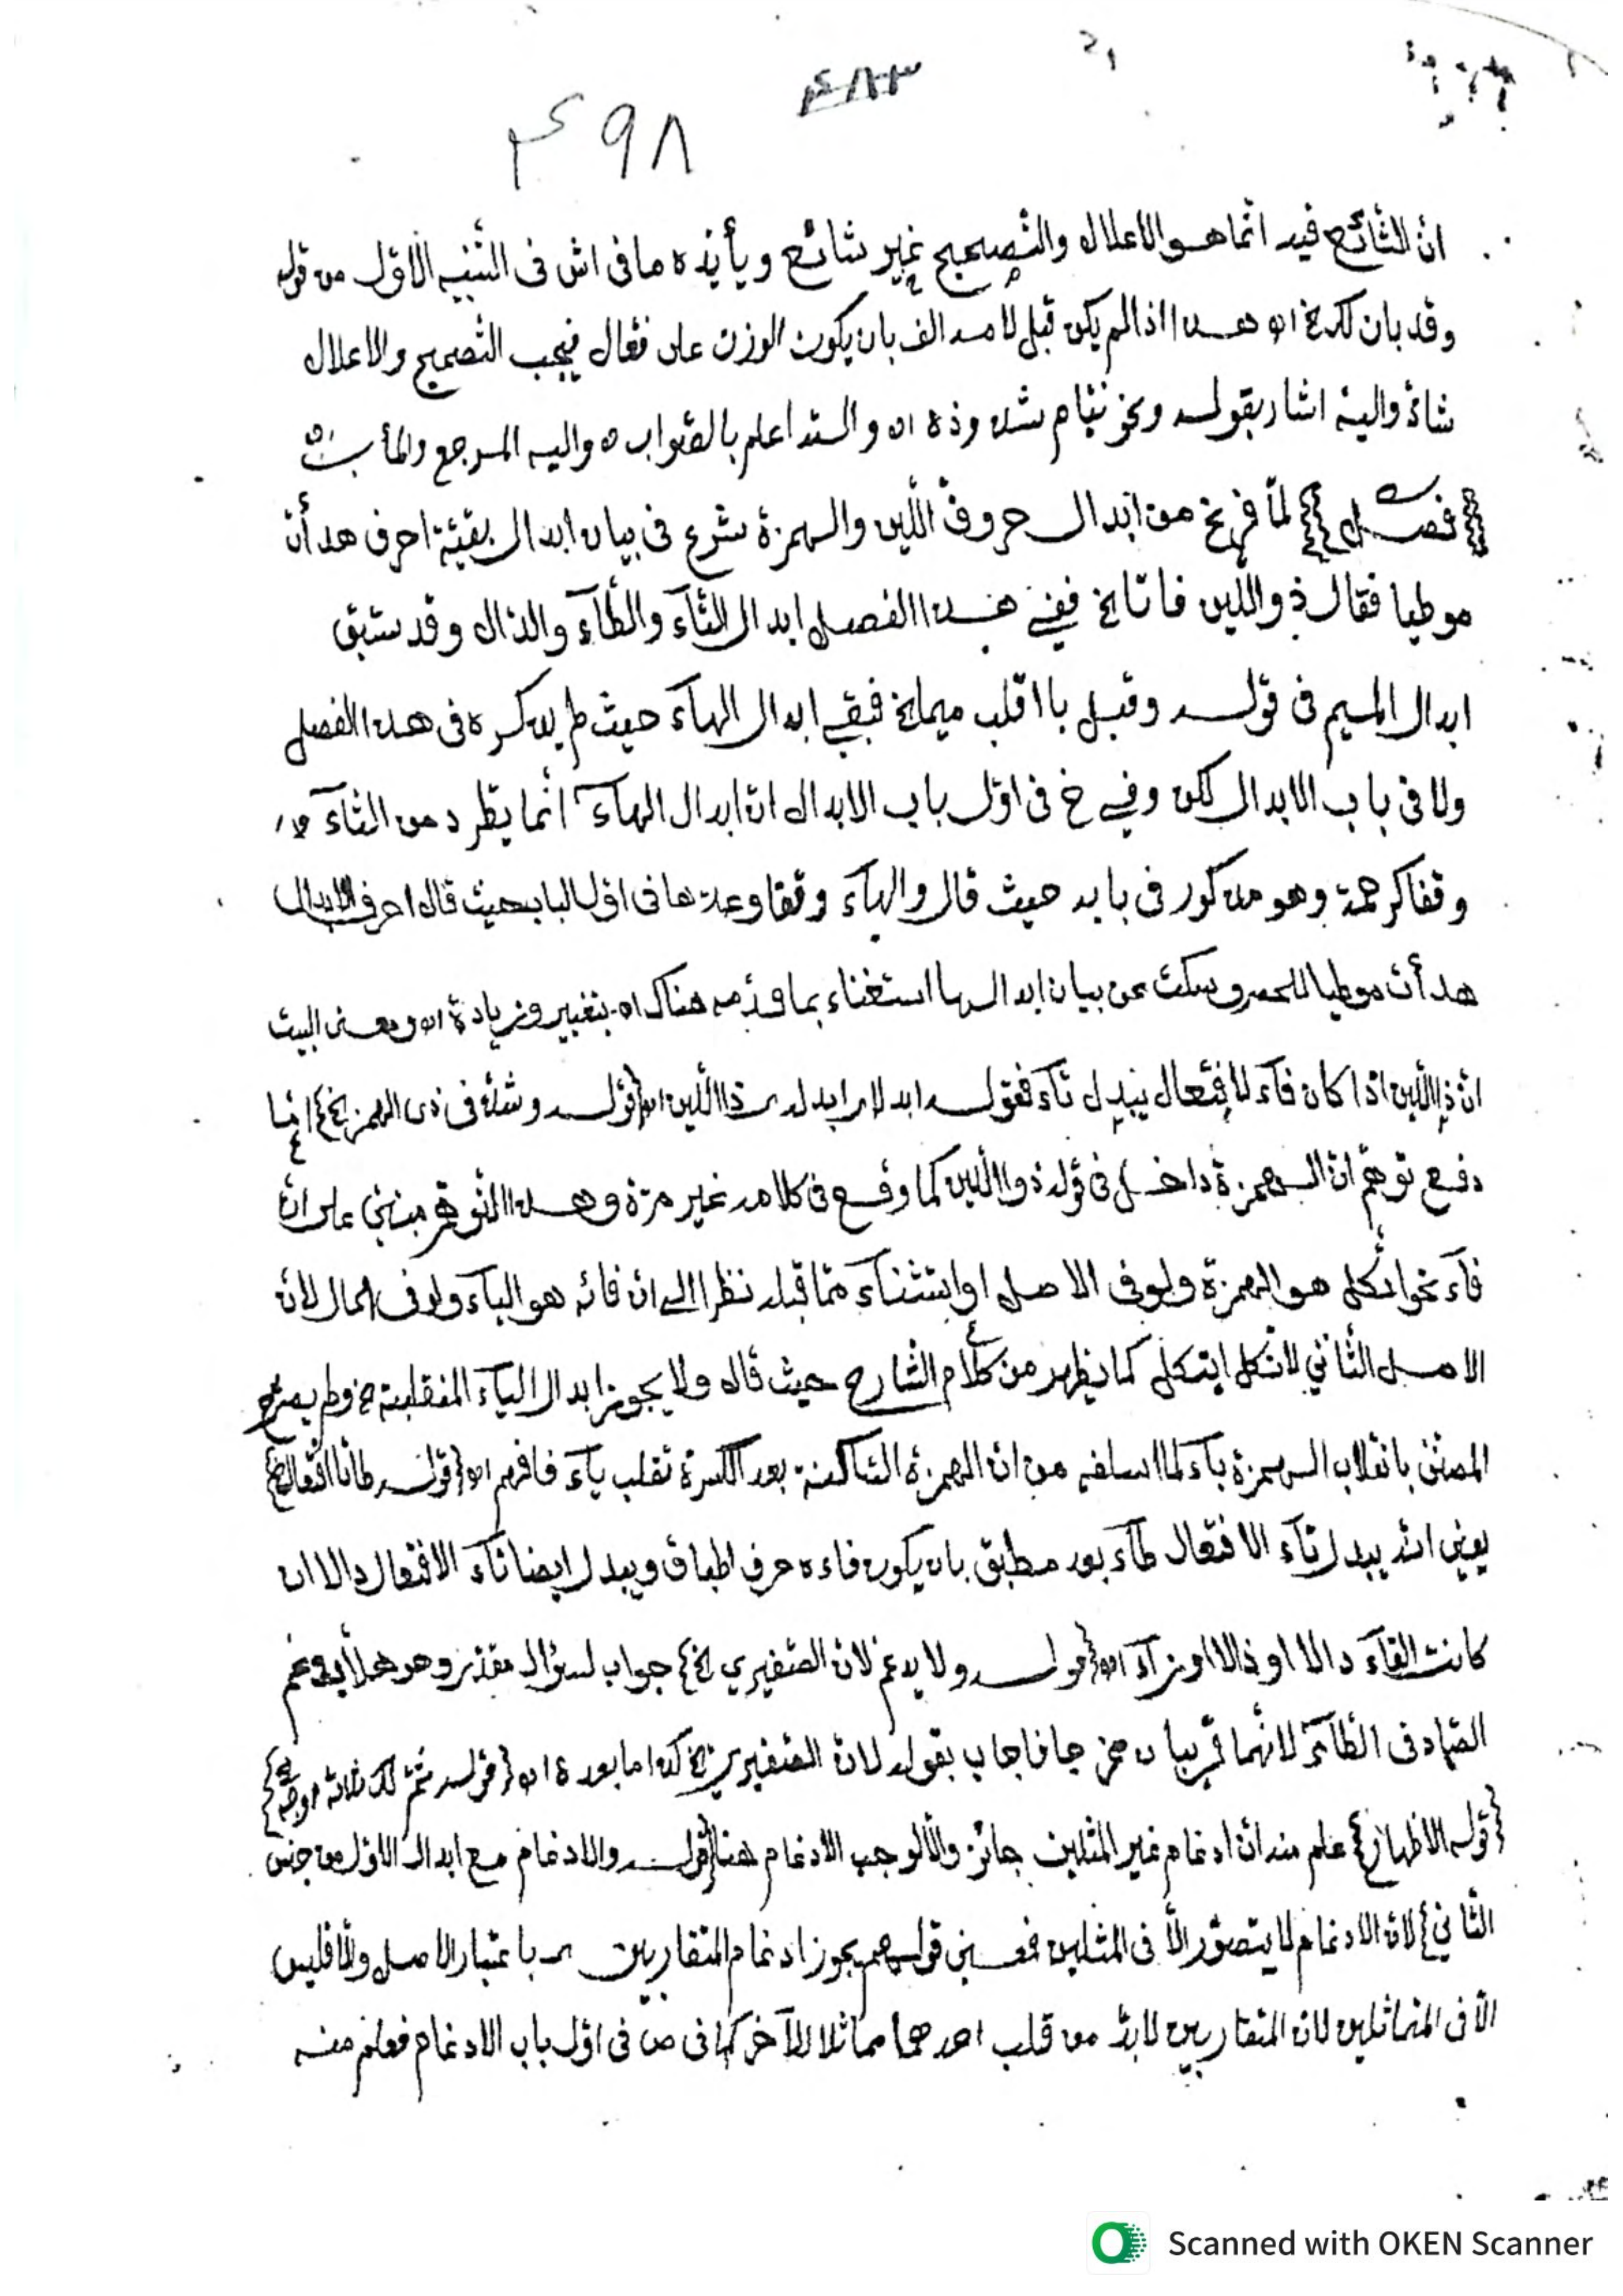 ۴۸۳
۴۹۸
انّ الشّائع فيه انّما هو الاعلال والتّصحيح غير شائع ويأيّده ما فى اش فى التّنبيه الاوّل من قوله
وقد بان لك الخ اه هذا اذا لم يكن قبل لامه الف بان يكون الوزن على فعّال فيجب التّصحيح والاعلال
شاذّ واليه اشار بقوله ونحو نيّام شذوذه اه والله اعلم بالصّواب واليه المرجع والمأب
{فصل} لمّا فرغ من ابدال حروف اللّين والهمزة شرع فى بيان ابدال بقيّة احرف هدأت
موطيا فقال ذو اللّين فا تا الخ ففى هذا الفصل ابدال التّآء والطّآء والدّال وقد سبق
ابدال الميم فى قوله وقبل با اقلب ميما الخ فبقى ابدال الهآء حيث لم يذكره فى هذا الفصل
ولا فى باب الابدال لكن وفى خ فى اوّل باب الابدال انّ ابدال الهآء انّما يطّرد من التّآء
وقفا كرحمة وهو مذكور فى بابه حيث قال والهآء وقفا وعدّها فى اوّل الباب حيث قال احرف الابدال
هدأت موطيا للحصر وسكت عن بيان ابدالها استغناء بما قدّمه هناك اه بتغيير وزيادة اه ومعنى البيت
انّ ذا اللّين اذا كان فآء لافتعال يبدل تآء فقوله ابدلا ابدل ذا اللّين اه {قوله وشذّ فى ذى الهمز الخ} انّما
دفع توهّم انّ الهمزة داخل فى قوله ذو اللّين كما وقع فى كلامه غير مرّة وهذا التّوهّم مبنيّ على انّ
فآء نحو ائتكل هو الهمزة ولو فى الاصل او استثنآء ممّا قبله نظرا الى ان فائه هو اليآء ولو فى الحال لانّ
الاصل الثّاني لاتّكل ايتكل كما يظهر من كلام الشّارح حيث قال ولا يجوز ابدال اليآء المنقلبة الخ ولم يصرّح
المصنّف بانقلاب الهمزة يآء لما اسلفه من انّ الهمزة السّاكنة بعد الكسرة تقلب يآء فافهم اه {قوله طا تا افتعال الخ}
يعني انّه يبدل تآء الافتعال طآء بعد مطبق بان يكون فاءه حرف اطباق ويبدل ايضا تآء الافتعال دالا ان
كانت الفآء دالا او ذالا او زآء اه {قوله ولا يدغم لانّ الصّفيري الخ} جواب لسؤال مقدّر وهو هلّا يدغم
الصّاد فى الطّآء لانّهما قريبان مخرجا فاجاب بقوله لانّ الصّفيري الخ كذا ما بعده اه {قوله ثمّ لك ثلاثة اوجه الخ}
{قوله الاظهار} علم منه انّ ادغام غير المثلين جائز والّا لوجب الادغام هنا {قوله والادغام مع ابدال الاوّل من جنس
الثّاني} لانّ الادغام لا يتصوّر الّا فى المثلين فمعنى قولهم يجوز ادغام المتقاربين باعتبار الاصل والّا فليس
الّا فى المتماثلين لانّ المتقاربين لا بدّ من قلب احدهما مماثلا للآخر كما فى ص فى اوّل باب الادغام فعلم منه
Scanned with OKEN Scanner